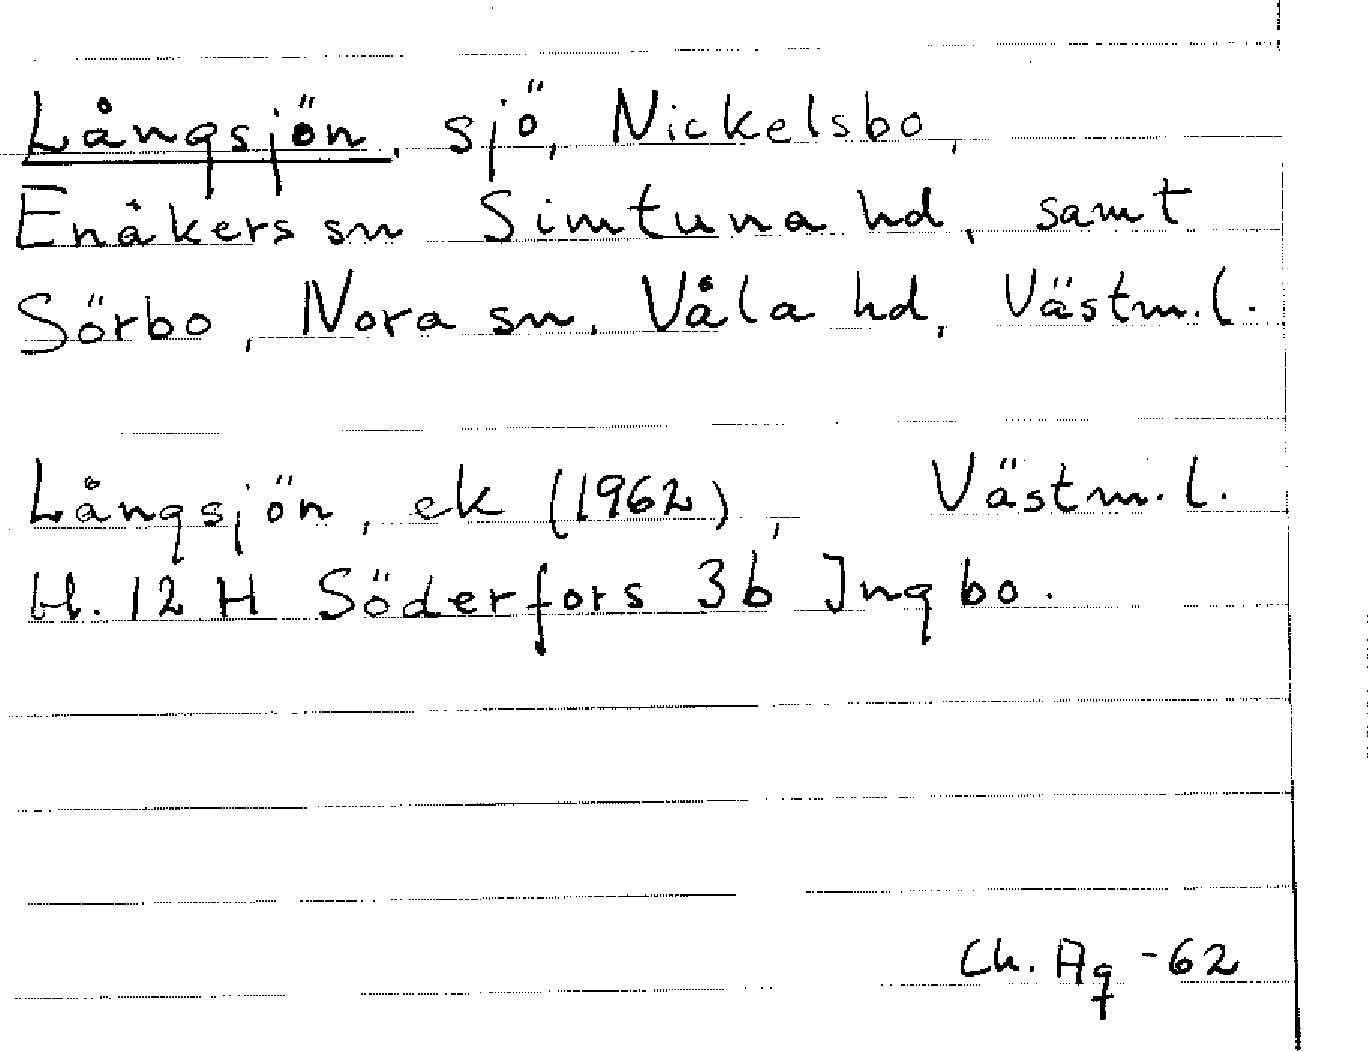 Långsjön, sjö, Nickelsbo,
Enåkers sn Simtuna hd, samt
Sörbo, Nora sn, Våla hd, Västm.l.
Långsjön, ek (1962), Västm.l.
bl. 12 H Söderfors 3b Ingbo.
Ch. Ag -62